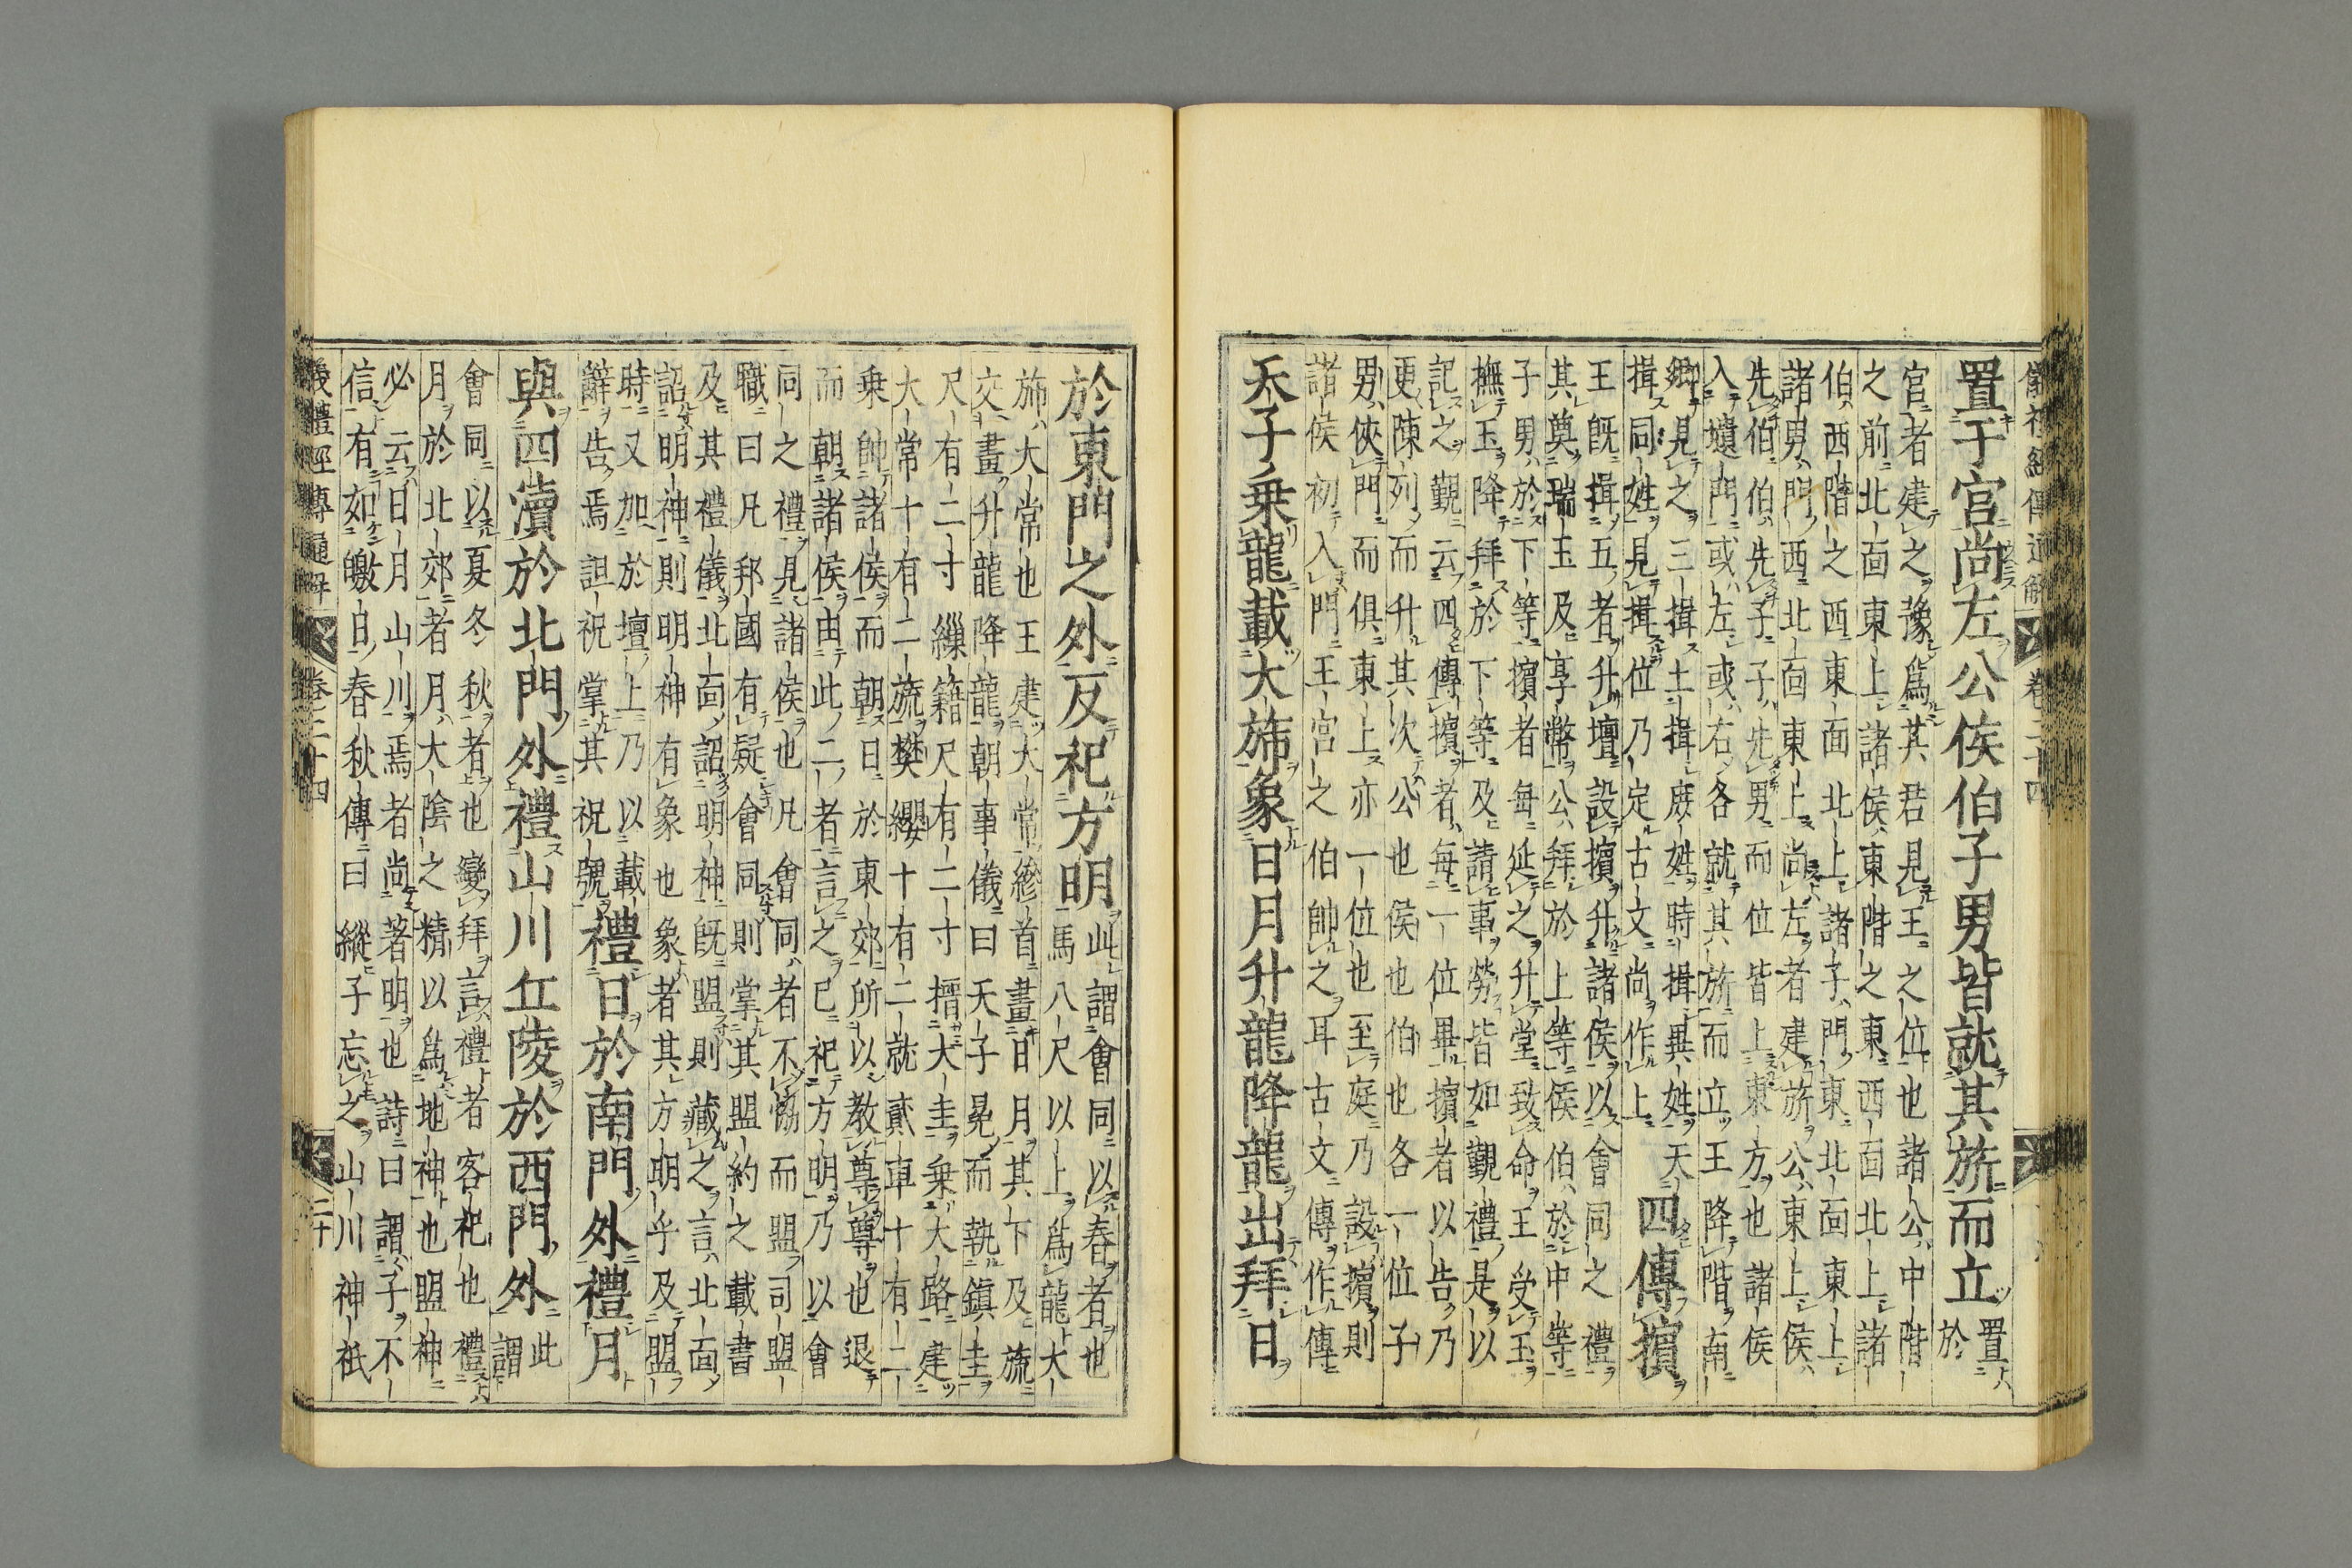 儀禮經傳通解 卷二十四
置于宮尚左公侯伯子男皆就其旂而立置於
宮者建之豫爲其君見王之位也諸公中階
之前北面東上諸侯東階之東西面北上諸
伯西階之西東面北上諸子門東北面東上
諸男門西北面東上尚左者建旂公東上侯
先伯伯先子子先男而位皆上東方也諸侯
入壝門或左或右各就其旂而立王降階南
鄉見之三揖土揖庶姓時揖異姓天
揖同姓見揖位乃定古文尚作上 四傳擯
王既揖五者升壇設擯升諸侯以會同之禮
其奠瑞玉及享幣公拜於上等侯伯於中等
子男於下等擯者每延之升堂致命王受玉
撫玉降拜於下等及請事勞皆如覲禮是以
記之覲云四傳擯者每一位畢擯者以告乃
更陳列而升其次公也侯也伯也各一位子
男俠門而俱東上亦一位也至庭乃設擯則
諸侯初入門王宮之伯帥之耳古文傳作傳
天子乗龍載大旆象日月升龍降龍出拜日
於東門之外反祀方明此謂會同以春者也
馬八尺以上爲龍大
旆大常也王建大常縿首畫日月其下及旒
交畫升龍降龍朝事儀曰天子冕而執鎮圭
尺有二寸繅籍尺有二寸搢大圭乗大路建
大常十有二旒樊纓十有二就貳車十有二
乗帥諸侯而朝日於東郊所以教尊尊也退
而朝諸侯由此二者言之已祀方明乃以會
同之禮見諸侯也凡會同者不協而盟司盟
職曰凡邦國有疑會同則掌其盟約之載書
及其禮儀北面詔明神既盟則藏之言北面
詔明神則明神有象也象者其方明乎及盟
時又加於壇上乃以載
辭告焉詛祝掌其祝號 禮日於南門外禮月
與四瀆於北門外禮山川丘陵於西門外此謂
會同以夏冬秋者也變拜言禮者客祀也禮
月於北郊者月大陰之精以爲地神也盟神
必云日月山川焉者尚著明也詩曰謂子不
信有如皦日春秋傳曰縱子忘之山川神祇
儀禮經傳通解 卷二十四 二十